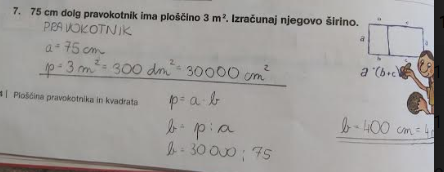 7. 75 cm dolg pravokotnik ima ploščino 3 m². Izračunaj njegovo širino.
PRAVOKOTNIK
a = 75 cm
p = 3 m² = 300 dm² = 30000 cm²
a
a·(b+c)
Ploščina pravokotnika in kvadrata
p = a · b
b = p : a
b = 30 000 : 75
b = 400 cm = 4